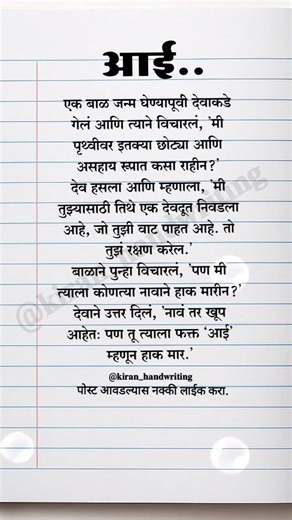 आई..
एक बाळ जन्म घेण्यापूवी देवाकडे
गेलं आणि त्याने विचारलं, 'मी
पृथ्वीवर इतक्या छोट्या आणि
असहाय रूपात कसा राहीन?'
देव हसला आणि म्हणाला, 'मी
तुझ्यासाठी तिथे एक देवदूत निवडला
आहे, जो तुझी वाट पाहत आहे. तो
तुझं रक्षण करेल.'
बाळाने पुन्हा विचारलं, 'पण मी
त्याला कोणत्या नावाने हाक मारीन?'
देवाने उत्तर दिलं, 'नावं तर खूप
आहेतः पण तू त्याला फक्त 'आई'
म्हणून हाक मार.'
@kiran_handwriting
पोस्ट आवडल्यास नक्की लाईक करा.
@kiran_handwriting